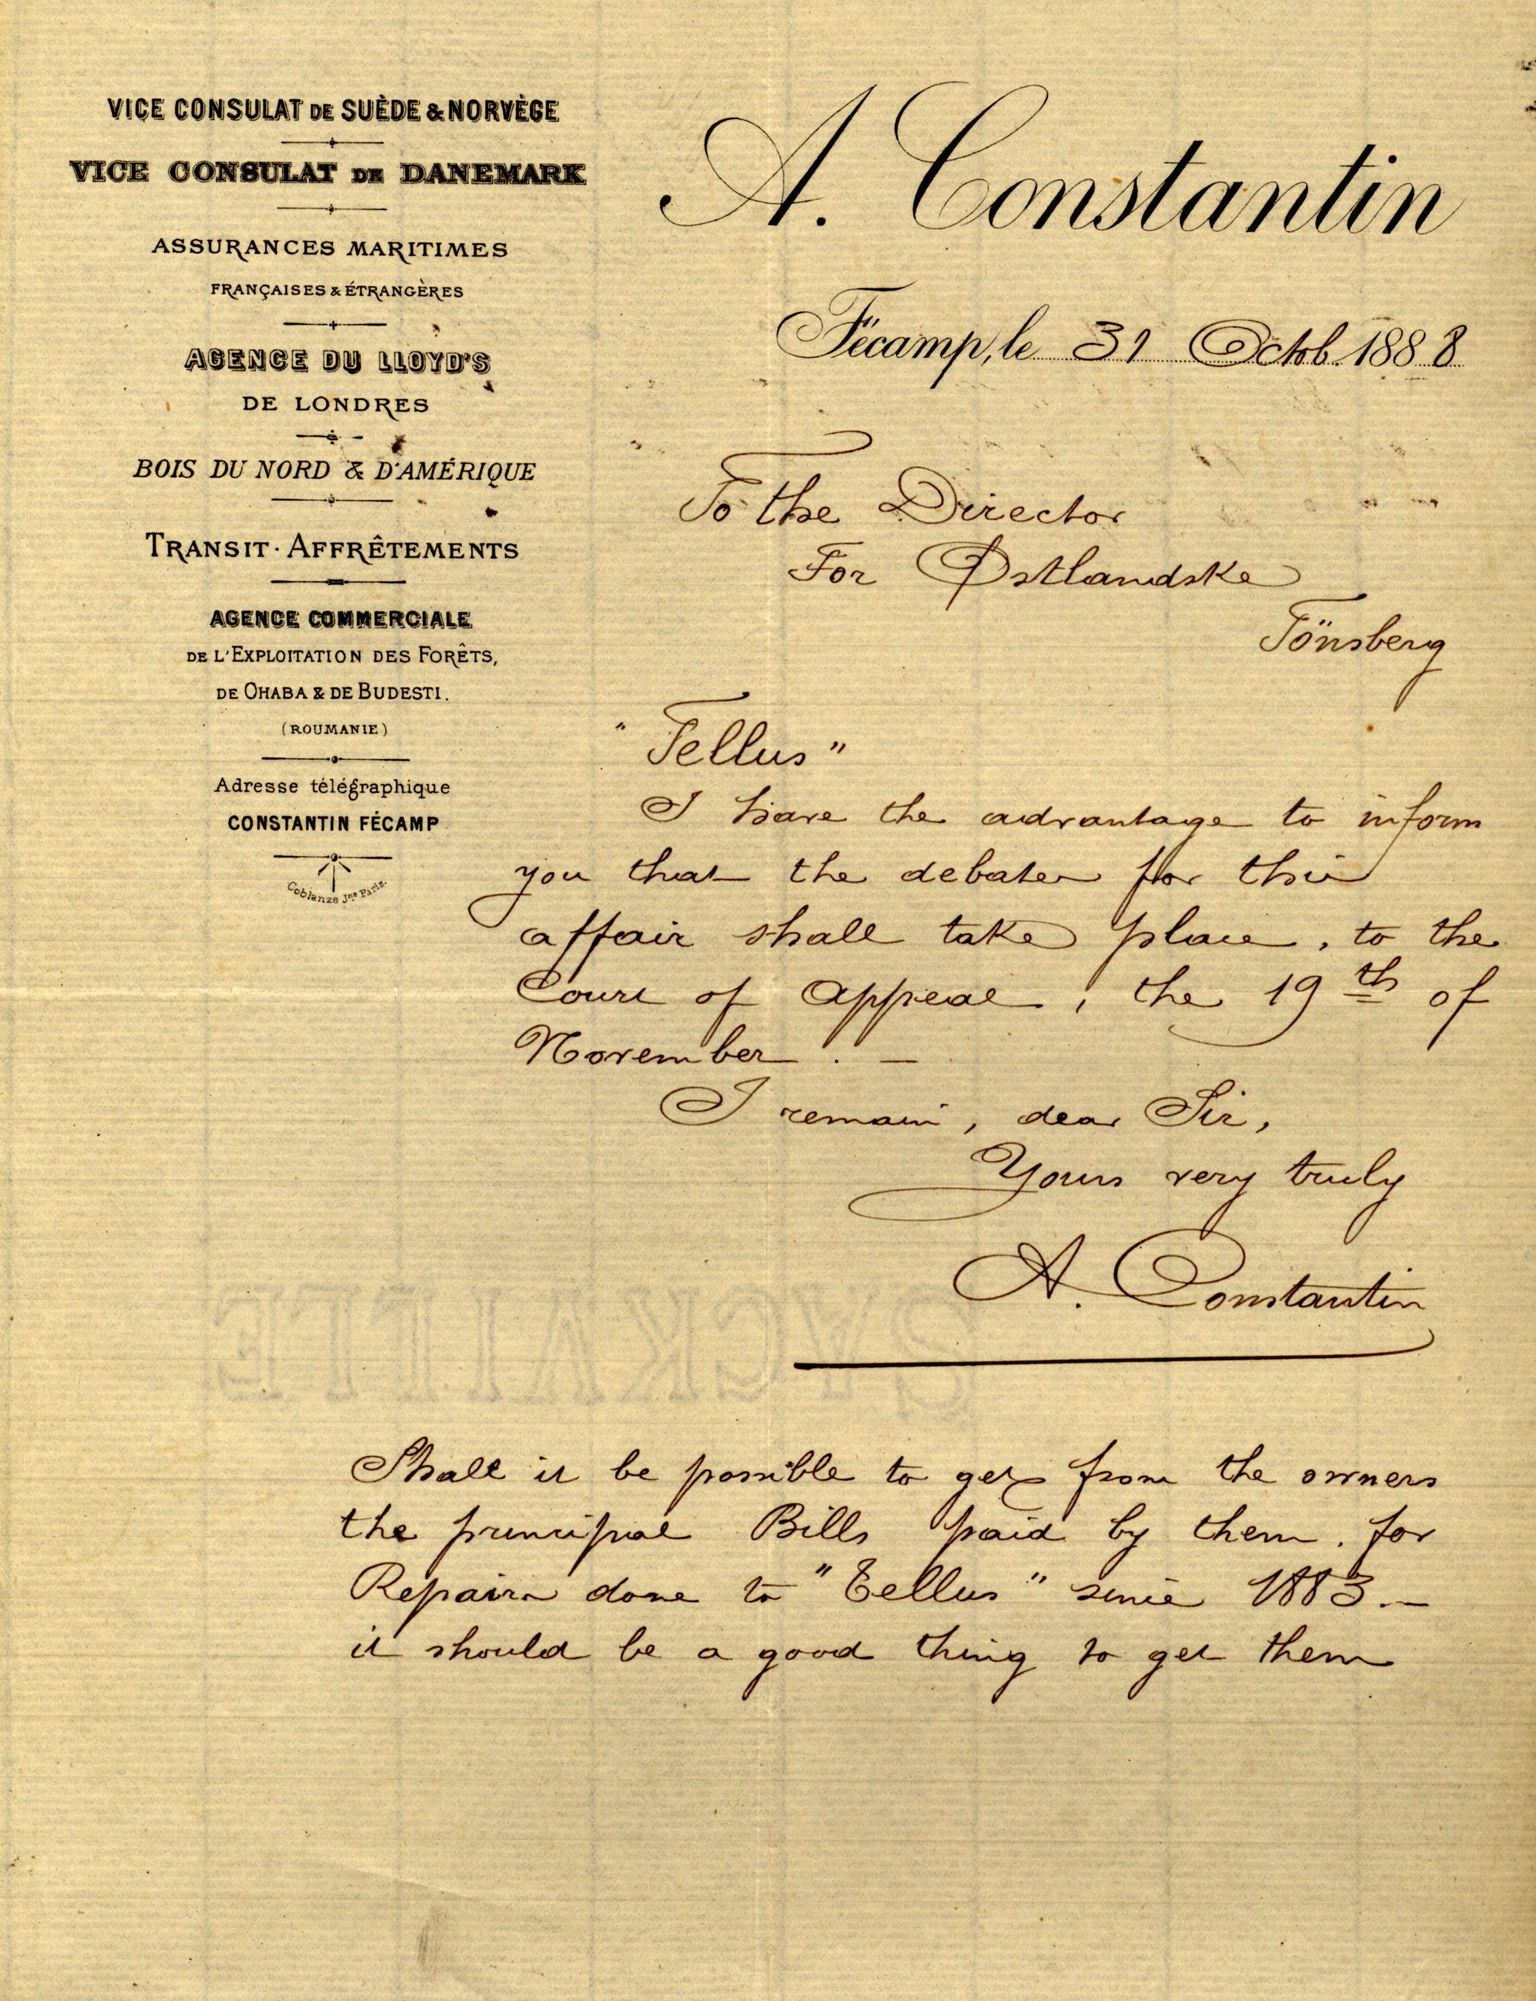 VICE CONSULAT DE SUÈDE & NORVÈGE
VICE CONSULAT DE DANEMARK
ASSURANCES MARITIMES
FRANÇAISES & ÉTRANGÈRES
AGENCE DU LLOYD'S
DE LONDRES
BOIS DU NORD & D'AMÉRIQUE
TRANSIT · AFFRÊTEMENTS
AGENCE COMMERCIALE
DE L'EXPLOITATION DES FORÊTS,
DE OHABA & DE BUDESTI.
(ROUMANIE)
Adresse télégraphique
CONSTANTIN FÉCAMP
Coblanze Jne Paris.
A. Constantin
Fécamp, le 31 Octob. 1888
To the Director
For Østlandske
Tönsberg
"Tellus"
I have the advantage to inform
you that the debates for this
affair shall take place, to the
Court of Appeal, the 19th of
November. —
I remain, dear Sir,
Yours very truly
A. Constantin
Shall it be possible to get from the owners
the principal Bills paid by them. for
Repairs done to "Tellus" since 1883. —
it should be a good thing to get them
SACKAITTE